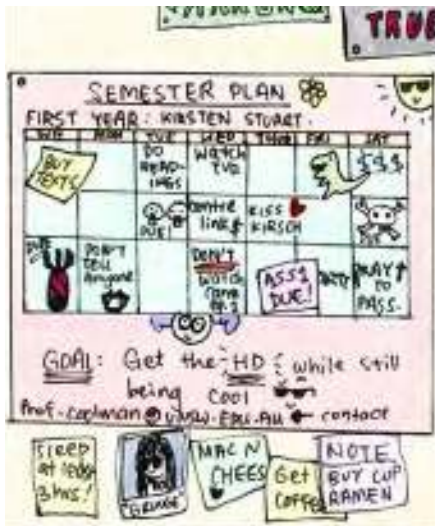 TRUE
SEMESTER PLAN
FIRST YEAR: KIRSTEN STUART.
MON TUE WED THUR FRI SAT
BUY TEXTS
DO READ-INGS
WATCH TVD
$$$
DUE!
centre link $
KISS KIRSCH
DUE
DUE
DON'T TELL Anyone
DON'T WATCH
ASS1 DUE!
PARTY
PRAY TO PASS.
GOAL: Get the HD while still
being COOL
Prof-coolman@UNSW.EDU.AU contact
SLEEP at least 3 hrs!
"GRUNGE"
MAC N CHEES
Get COFFEE
NOTE BUY CUP RAMEN